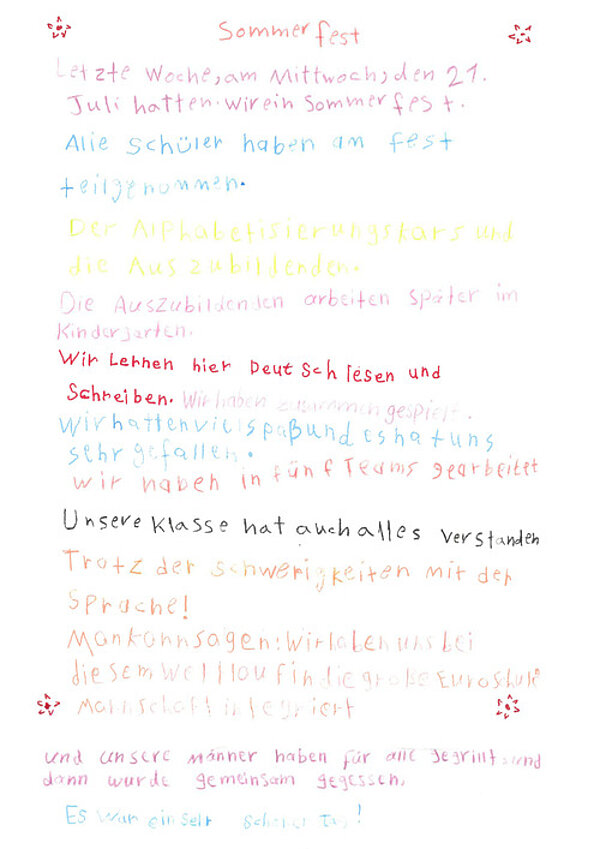 Sommerfest
Letzte Woche, am Mittwoch, den 21.
Juli hatten wir ein Sommerfest.
Alle Schüler haben am fest
teilgenommen.
Der Alphabetisierungskars und
die Auszubildenden.
Die Auszubildenden arbeiten später im
Kindergarten.
Wir Lernen hier Deutsch lesen und
Schreiben. Wir haben zusammen gespielt.
Wir hatten viel spaß und es hat uns
sehr gefallen.
Wir haben in fünf Teams gearbeitet
Unsere Klasse hat auch alles verstanden
Trotz der schwerigkeiten mit der
Sprache!
Man kann sagen: Wir haben uns bei
diesem Wettlauf in die große Euroshule
Mannschaft integriert
und unsere männer haben für alle gegrillt und
dann wurde gemeinsam gegessen.
Es war ein sehr schöner Tag!